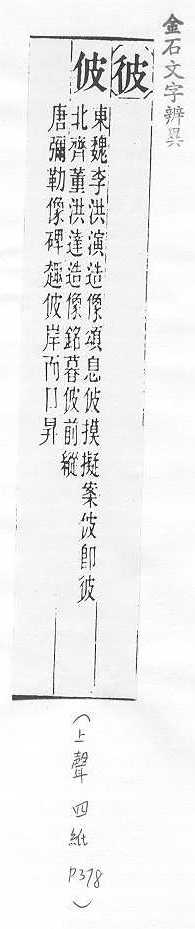 金石文字辨異
彼
佊
東魏李洪演造像頌息佊摸擬案佊卽彼
北齊董洪達造像銘暮佊前縱
唐彌勒像碑趨佊岸而口昇
(上聲 四紙 P.378)